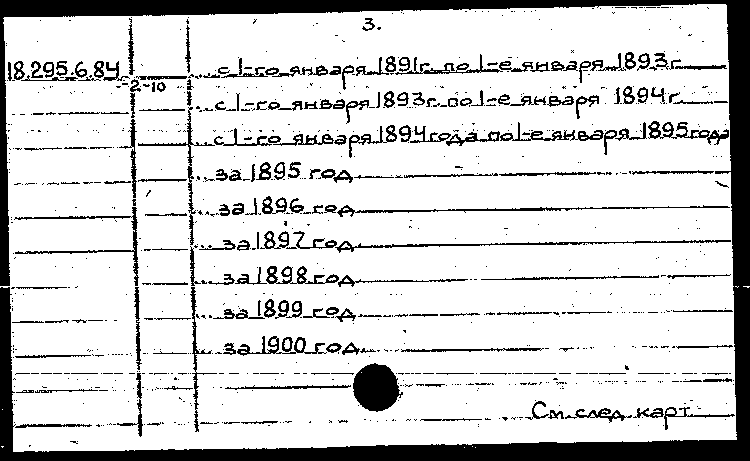 3.
18.295.6.84 ... с 1-го января 1891г. по 1-е января 1893г
-2-10
... с 1-го января 1893г. по 1-е января 1894г.
... с 1-го января 1894года по 1-е января 1895года
... за 1895 год
... за 1896 год
... за 1897 год
... за 1898 год
... за 1899 год
... за 1900 год
См. след. карт.